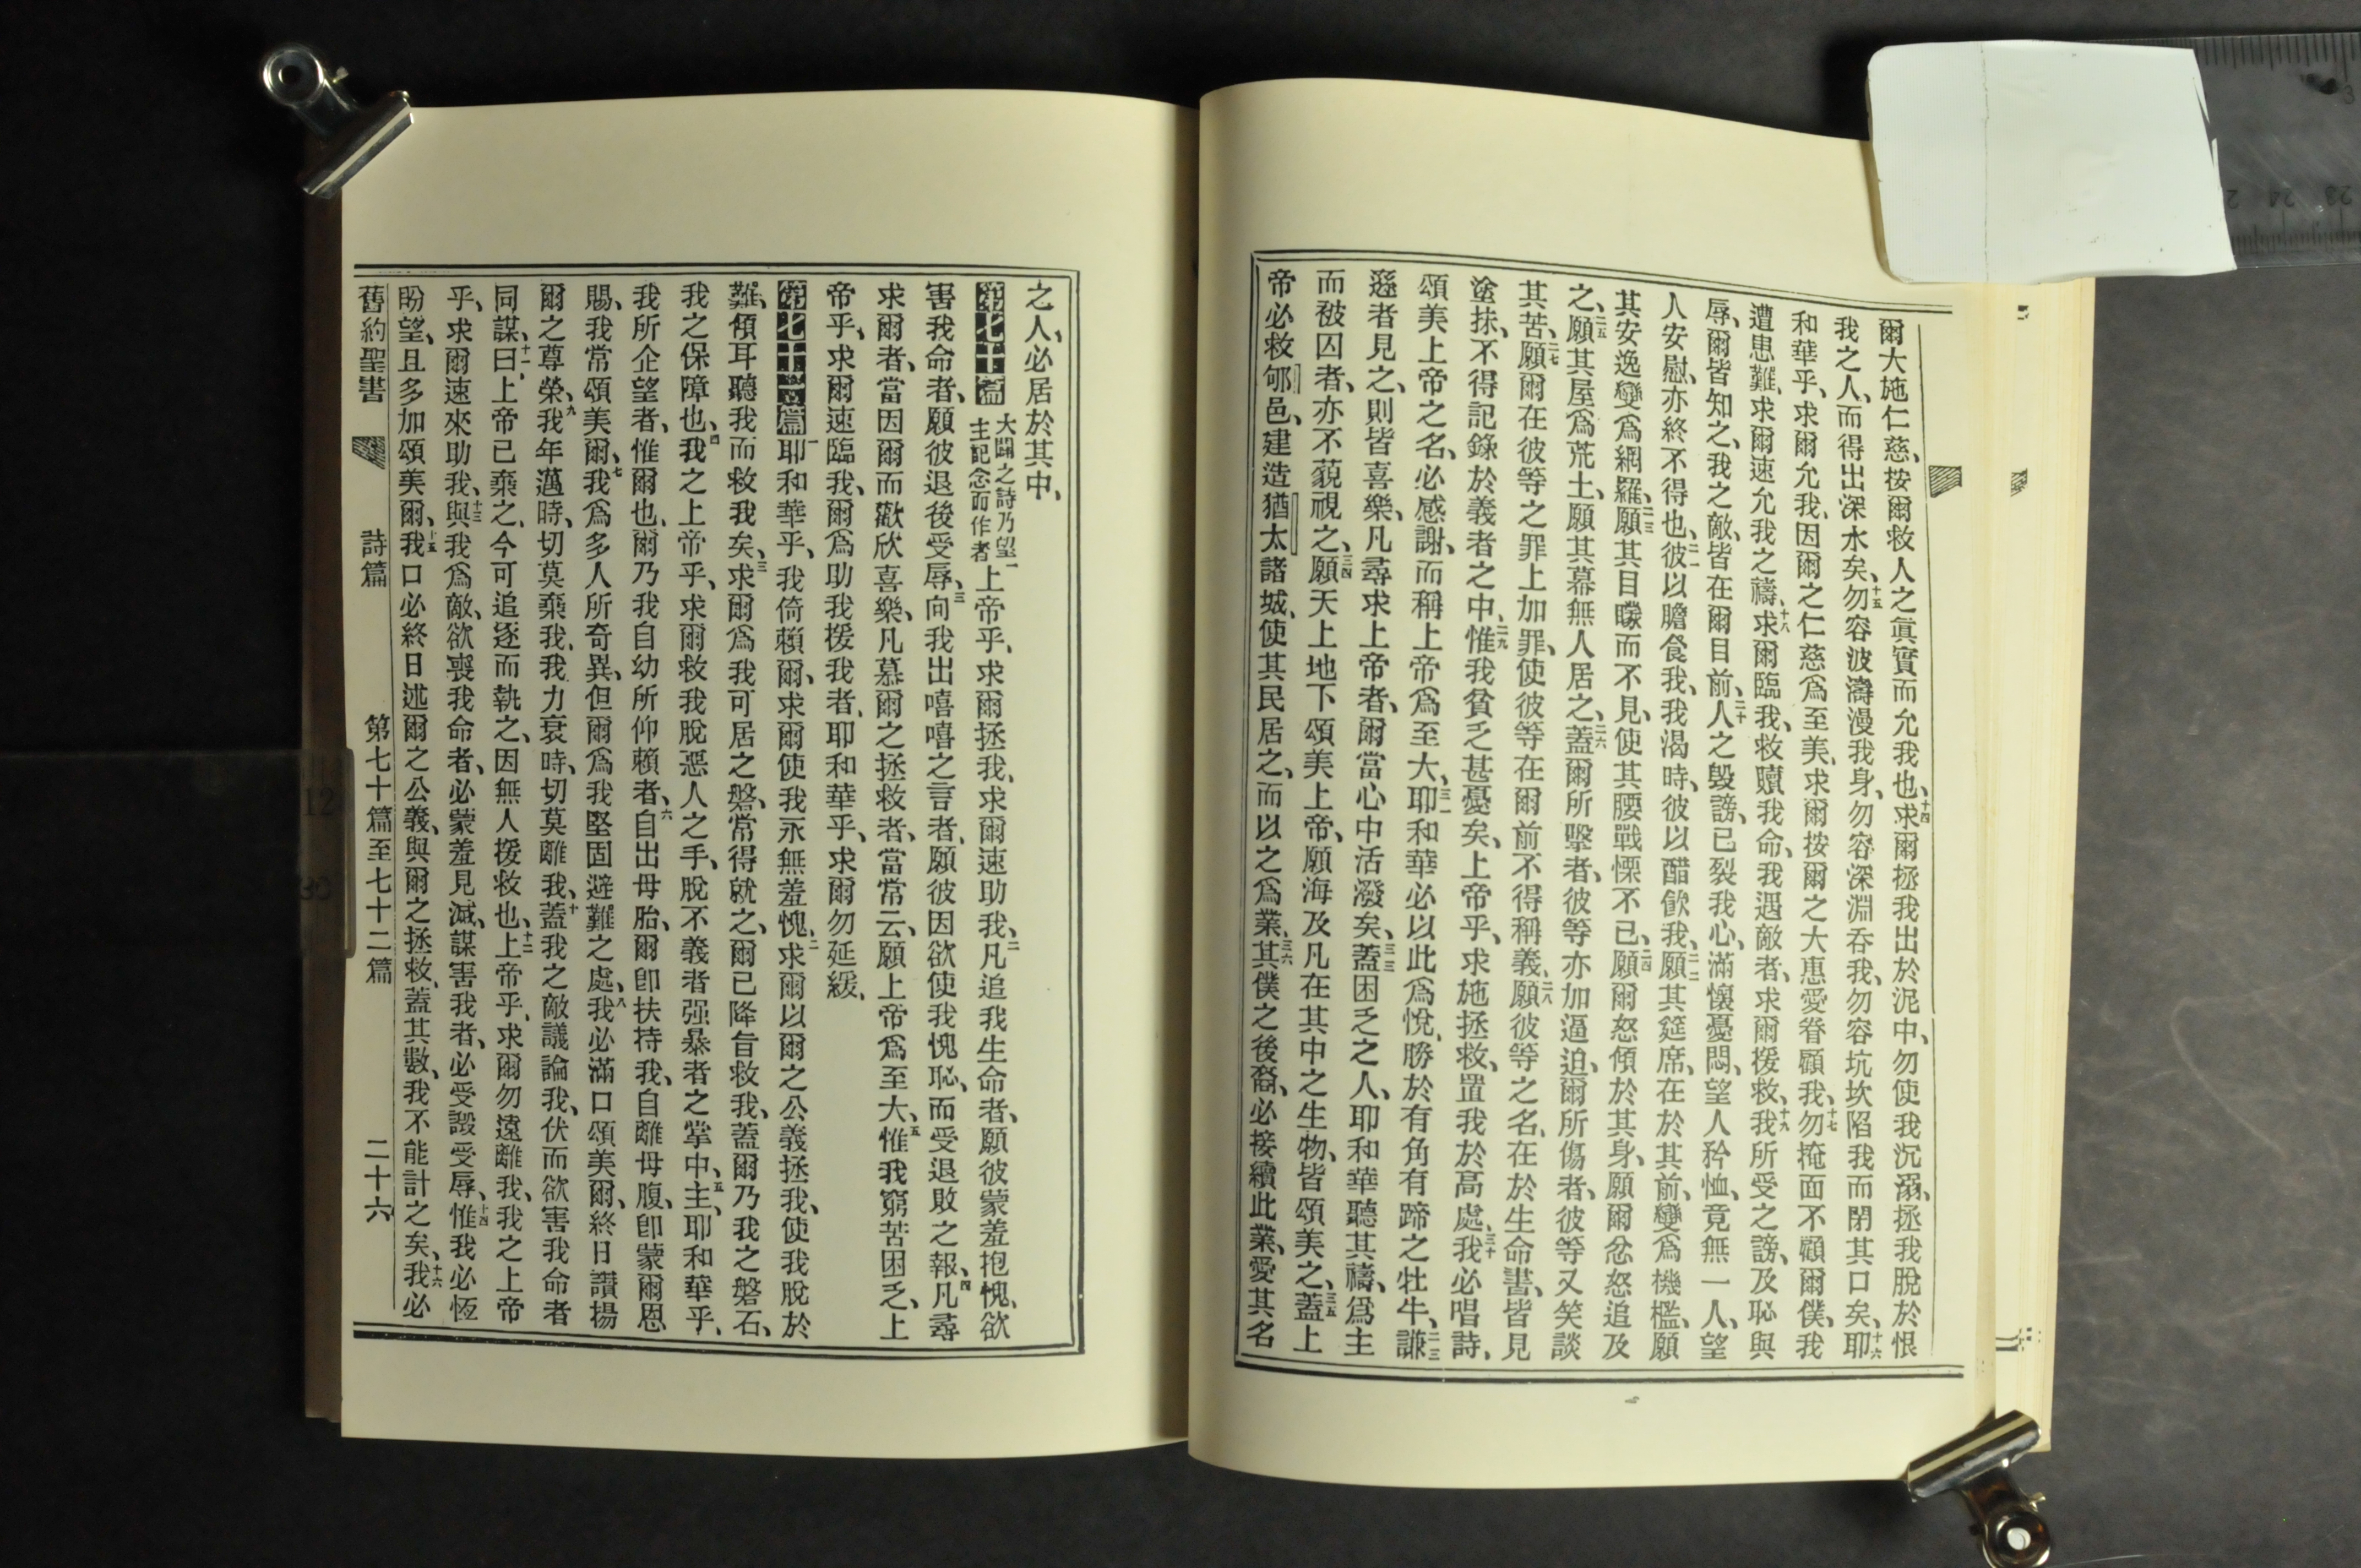 爾大施仁慈、按爾救人之眞實而允我也、十四求爾拯我出於泥中、勿使我沉溺、拯我脫於恨
我之人、而得出深水矣、十五勿容波濤漫我身、勿容深淵吞我、勿容坑坎陷我而閉其口矣、十六耶
和華乎、求爾允我、因爾之仁慈爲至美、求爾按爾之大惠愛眷顧我、十七勿掩面不顧爾僕、我
遭患難、求爾速允我之禱、十八求爾臨我、救贖我命、我遇敵者、求爾援救、十九我所受之謗、及恥與
辱、爾皆知之、我之敵、皆在爾目前、二十人之毀謗、已裂我心、滿懷憂悶、望人矜恤、竟無一人、望
人安慰、亦終不得也、二一彼以膽食我、我渴時、彼以醋飮我、二二願其筵席、在於其前、變爲機檻、願
其安逸變爲網羅、二三願其目矇而不見、使其腰戰慄不已、二四願爾怒傾於其身、願爾忿怒追及
之、二五願其屋爲荒土、願其幕無人居之、二六蓋爾所擊者、彼等亦加逼迫、爾所傷者、彼等又笑談
其苦、二七願爾在彼等之罪上加罪、使彼等在爾前不得稱義、二八願彼等之名、在於生命書、皆見
塗抹、不得記錄於義者之中、二九惟我貧乏甚憂矣、上帝乎、求施拯救、置我於高處、三十我必唱詩、
頌美上帝之名、必感謝、而稱上帝爲至大、三一耶和華必以此爲悅、勝於有角有蹄之牡牛、三二謙
遜者見之、則皆喜樂、凡尋求上帝者、爾當心中活潑矣、三三蓋困乏之人、耶和華聽其禱、爲主
而被囚者、亦不藐視之、三四願天上地下頌美上帝、願海及凡在其中之生物、皆頌美之、三五蓋上
帝必救郇邑、建造猶太諸城、使其民居之、而以之爲業、三六其僕之後裔、必接續此業、愛其名
之人、必居於其中、
第七十篇 大闢之詩乃望主記念而作者 一上帝乎、求爾拯我、求爾速助我、二凡追我生命者、願彼蒙羞抱愧、欲
害我命者、願彼退後受辱、三向我出嘻嘻之言者、願彼因欲使我愧恥、而受退敗之報、四凡尋
求爾者、當因爾而歡欣喜樂、凡慕爾之拯救者、當常云、願上帝爲至大、五惟我窮苦困乏、上
帝乎、求爾速臨我、爾爲助我援我者、耶和華乎、求爾勿延緩、
第七十一篇 一耶和華乎、我倚賴爾、求爾使我永無羞愧、二求爾以爾之公義拯我、使我脫於
難、傾耳聽我而救我矣、三求爾爲我可居之磐、常得就之、爾已降旨救我、蓋爾乃我之磐石、
我之保障也、四我之上帝乎、求爾救我脫惡人之手、脫不義者强暴者之掌中、五主、耶和華乎、
我所企望者、惟爾也、爾乃我自幼所仰賴者、六自出母胎、爾卽扶持我、自離母腹、卽蒙爾恩
賜、我常頌美爾、七我爲多人所奇異、但爾爲我堅固避難之處、八我必滿口頌美爾、終日讚揚
爾之尊榮、九我年邁時、切莫棄我、我力衰時、切莫離我、十蓋我之敵議論我、伏而欲害我命者
同謀、十一曰、上帝已棄之、今可追逐而執之、因無人援救也、十二上帝乎、求爾勿遠離我、我之上帝
乎、求爾速來助我、十三與我爲敵、欲喪我命者、必蒙羞見滅、謀害我者、必受譭受辱、十四惟我必恆
盼望、且多加頌美爾、十五我口必終日述爾之公義、與爾之拯救、蓋其數、我不能計之矣、十六我必
舊約聖書 詩篇 第七十篇至七十二篇 二十六